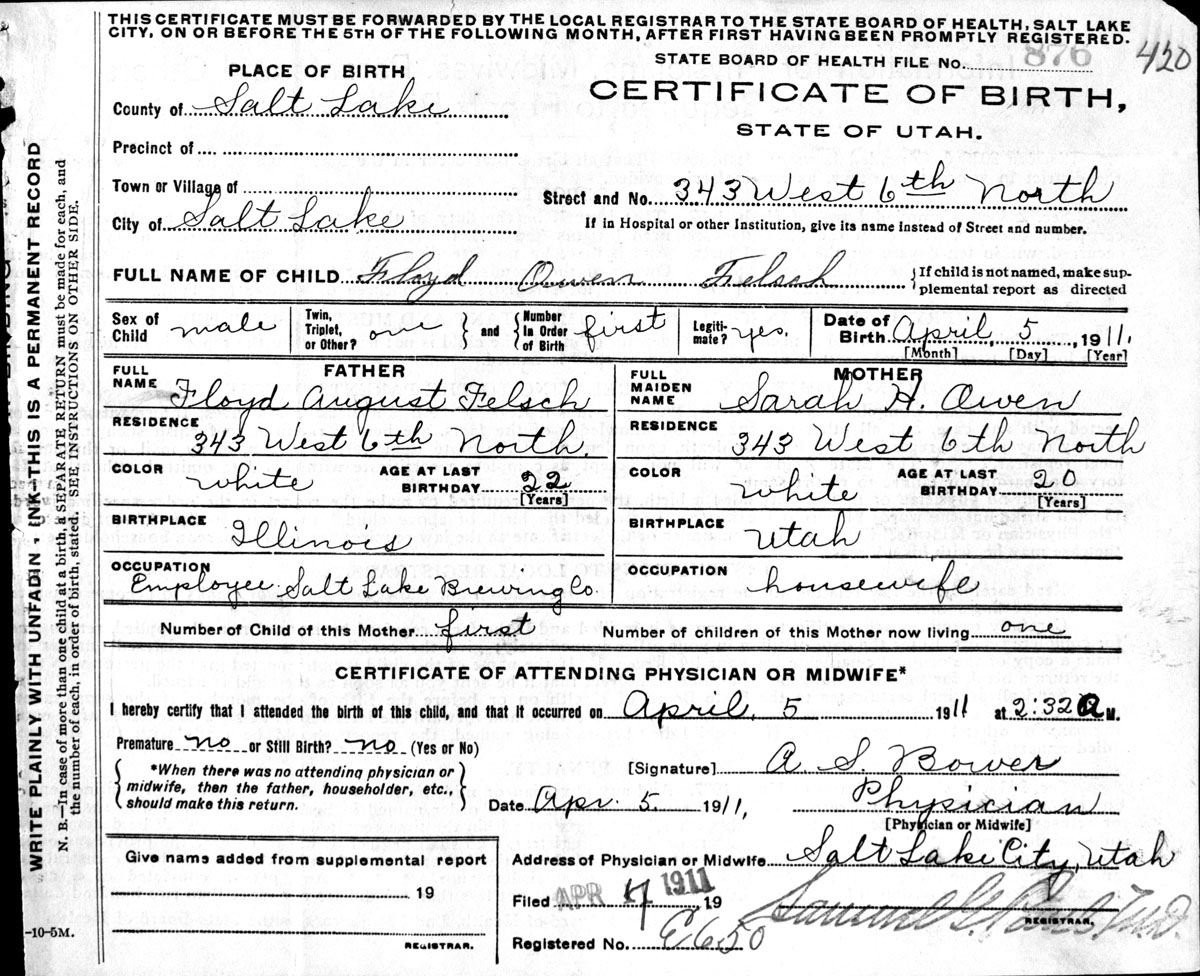 THIS CERTIFICATE MUST BE FORWARDED BY THE LOCAL REGISTRAR TO THE STATE BOARD OF HEALTH, SALT LAKE
CITY, ON OR BEFORE THE 5TH OF THE FOLLOWING MONTH, AFTER FIRST HAVING BEEN PROMPTLY REGISTERED.
420
STATE BOARD OF HEALTH FILE No. 876
PLACE OF BIRTH
CERTIFICATE OF BIRTH,
STATE OF UTAH.
County of Salt Lake
Precinct of
Town or Village of
Street and No. 343 West 6th North
City of Salt Lake
If in Hospital or other Institution, give its name instead of Street and number.
FULL NAME OF CHILD Floyd Owen Felsch
{If child is not named, make sup-
plemental report as directed
Sex of Child male
Twin, Triplet, or Other? one } and { Number In Order of Birth first
Legiti-mate? yes.
Date of Birth April, 5, 1911,
[Month] [Day] [Year]
FATHER
FULL NAME Floyd August Felsch
RESIDENCE 343 West 6th North.
COLOR white AGE AT LAST BIRTHDAY 22
[Years]
BIRTHPLACE Illinois
OCCUPATION Employee Salt Lake Brewing Co.
MOTHER
FULL MAIDEN NAME Sarah H. Owen
RESIDENCE 343 West 6th North
COLOR white AGE AT LAST BIRTHDAY 20
[Years]
BIRTHPLACE Utah
OCCUPATION housewife
Number of Child of this Mother first Number of children of this Mother now living one
CERTIFICATE OF ATTENDING PHYSICIAN OR MIDWIFE*
I hereby certify that I attended the birth of this child, and that it occurred on April, 5 1911 at 2:32 a M.
Premature no or Still Birth? no (Yes or No)
{ *When there was no attending physician or
midwife, then the father, householder, etc.,
should make this return. }
[Signature] A. S. Bower
Date Apr. 5 1911, Physician
[Physician or Midwife]
Give name added from supplemental report
19
REGISTRAR.
Address of Physician or Midwife Salt Lake City, Utah
Filed APR 17 1911 19
Samuel G. M.D.
REGISTRAR.
Registered No. E650
WRITE PLAINLY WITH UNFADIN INK-THIS IS A PERMANENT RECORD
N. B.—In case of more than one child at a birth, a SEPARATE RETURN must be made for each, and
the number of each, in order of birth, stated. SEE INSTRUCTIONS ON OTHER SIDE.
-10-5M.